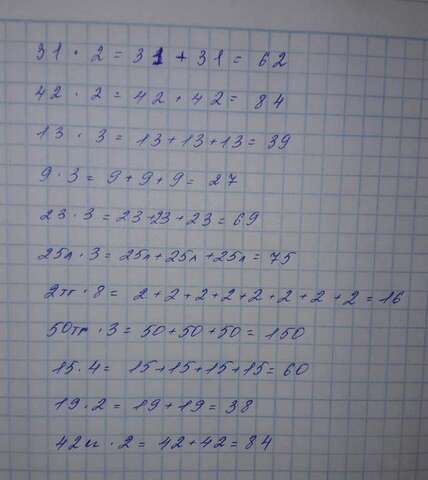 31 · 2 = 31 + 31 = 62
42 · 2 = 42 + 42 = 84
13 · 3 = 13 + 13 + 13 = 39
9 · 3 = 9 + 9 + 9 = 27
23 · 3 = 23 + 23 + 23 = 69
25л · 3 = 25л + 25л + 25л = 75
2тг · 8 = 2 + 2 + 2 + 2 + 2 + 2 + 2 + 2 = 16
50тг · 3 = 50 + 50 + 50 = 150
15 · 4 = 15 + 15 + 15 + 15 = 60
19 · 2 = 19 + 19 = 38
42кг · 2 = 42 + 42 = 84